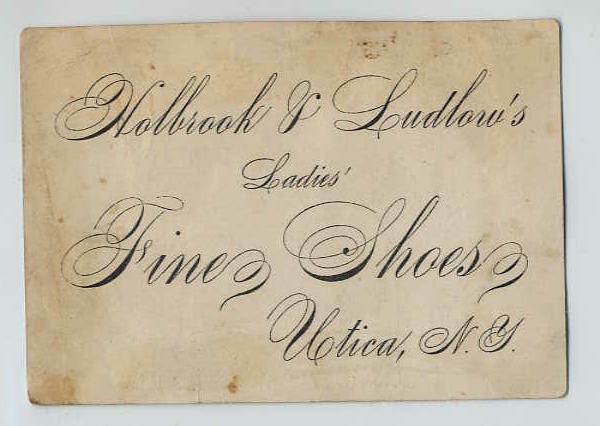 Holbrook & Ludlow's
Ladies'
Fine Shoes
Utica, N.Y.